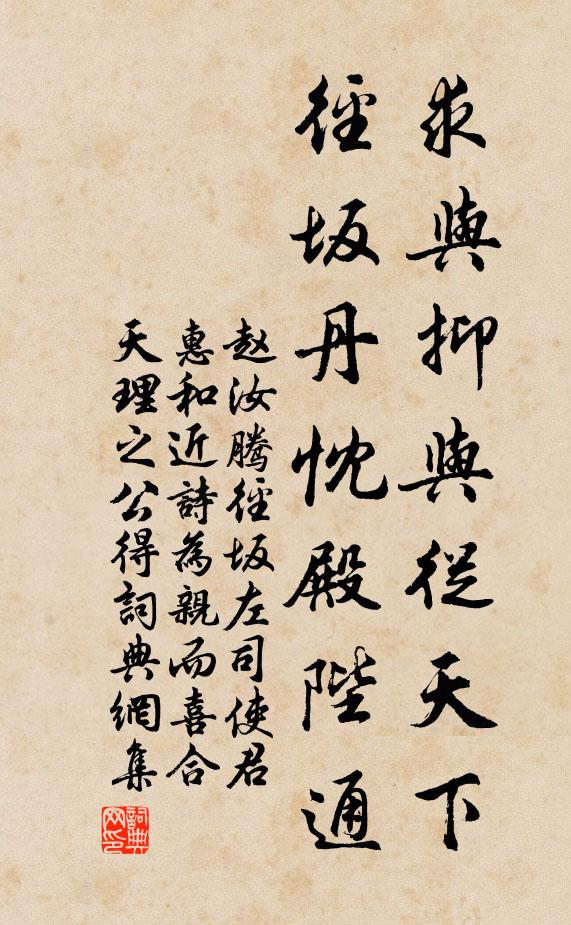 求與抑與從天下
徑坂丹忱殿陛通
赵汝騰徑坂左司使君
惠和近詩為親而喜合
天理之公得詞典網集
詞典
网印